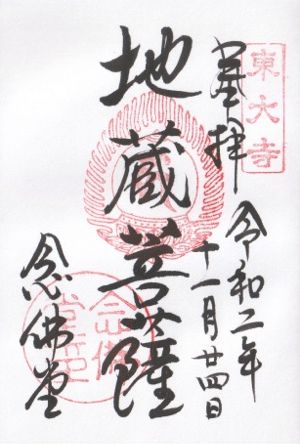 東大寺
奉拝
令和二年
十一月廿四日
地蔵菩薩
念佛堂